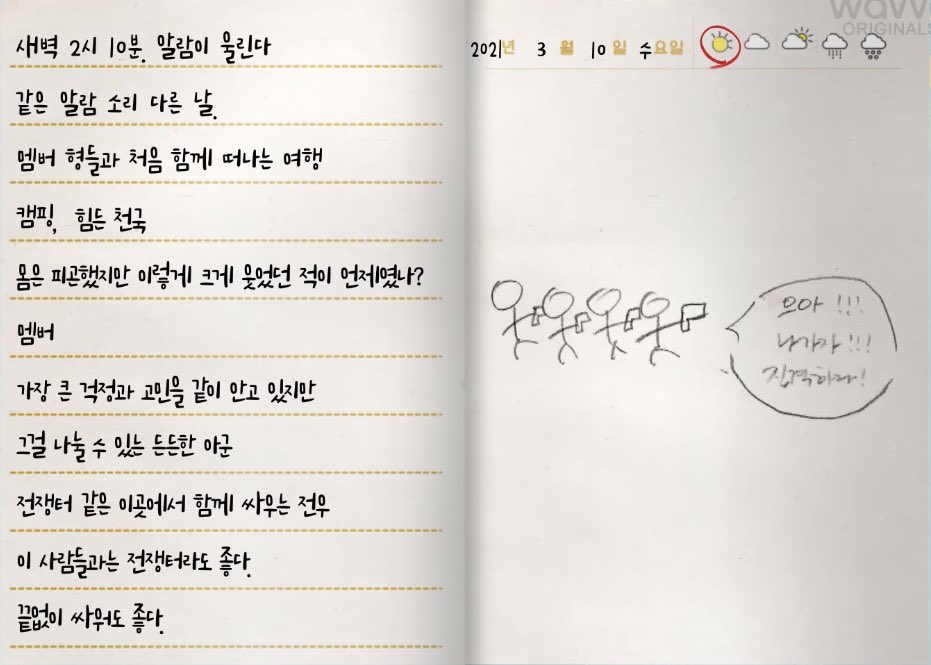 새벽 2시 10분. 알람이 울린다
같은 알람 소리 다른 날.
멤버 형들과 처음 함께 떠나는 여행
캠핑, 힘든 천국
몸은 피곤했지만 이렇게 크게 웃었던 적이 언제였나?
멤버
가장 큰 걱정과 고민을 같이 안고 있지만
그걸 나눌 수 있는 든든한 아군
전쟁터 같은 이곳에서 함께 싸우는 전우
이 사람들과는 전쟁터라도 좋다.
끝없이 싸워도 좋다.
wavve
ORIGINALS
2021년 3월 10일 수요일
으아 !!!
나가자 !!!
진격하라!